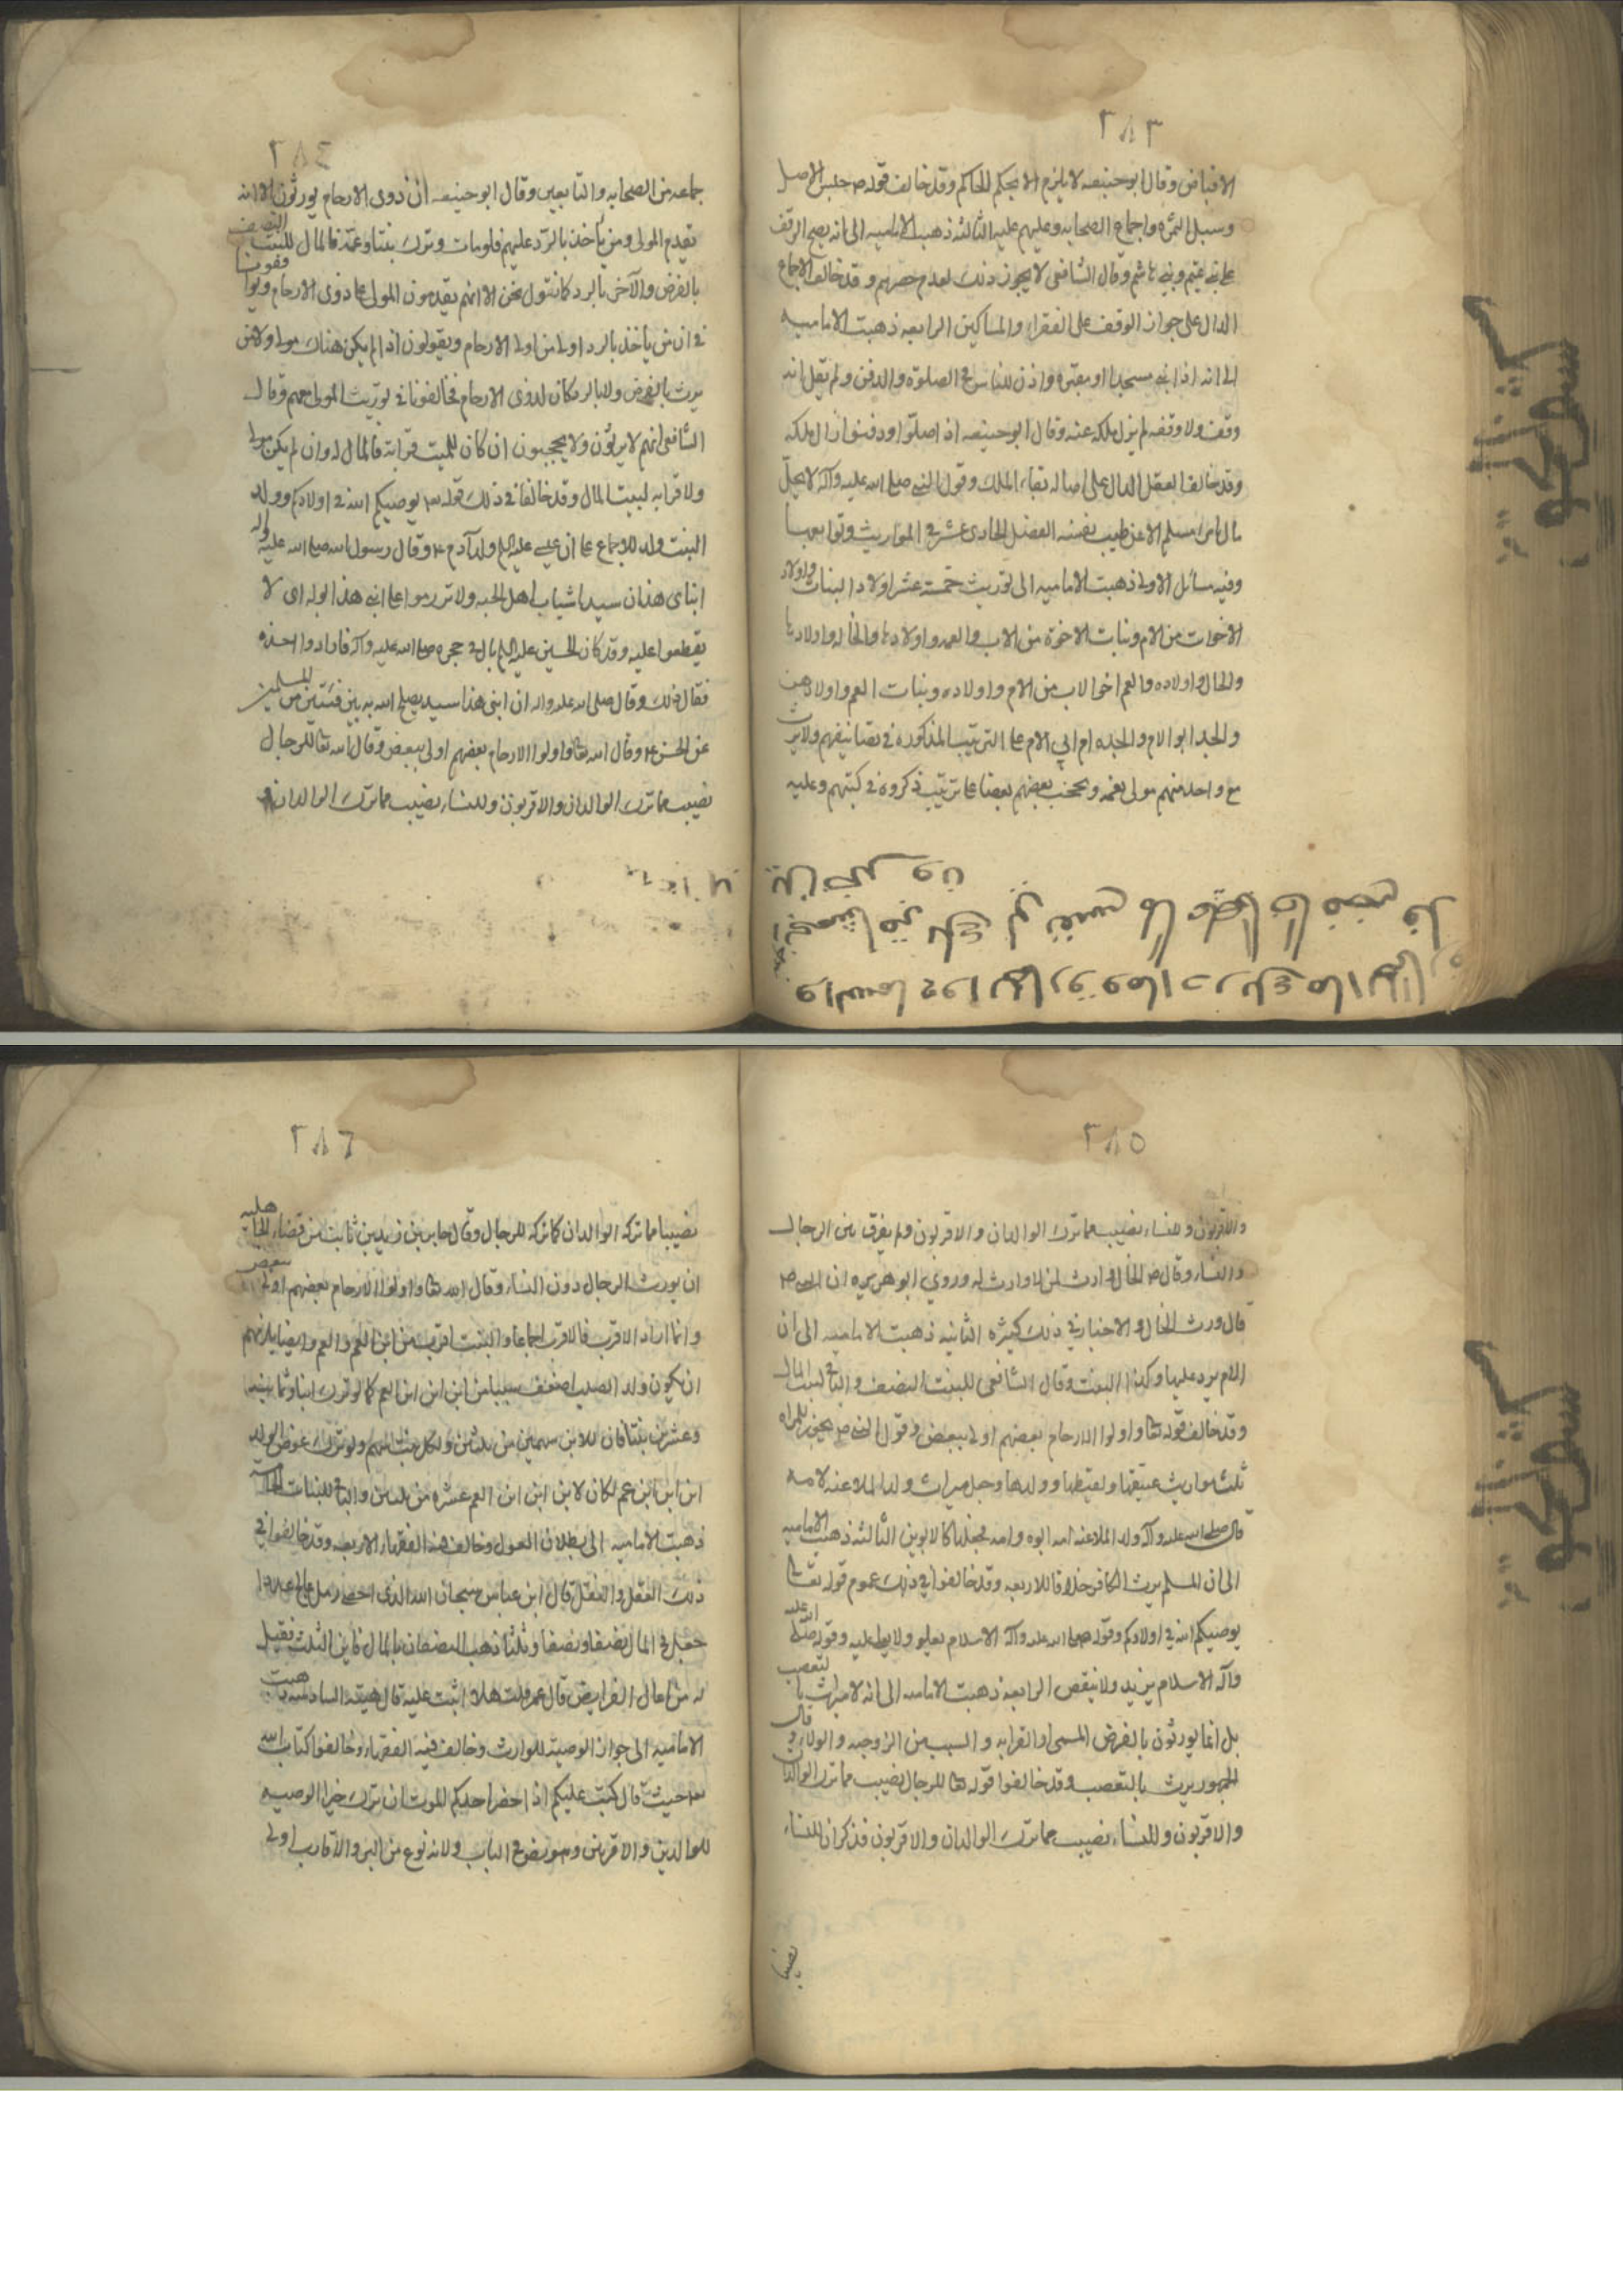 ٢٨٣
الاقباض وقال ابو حنيفه لا يلزم الا بحكم الحاكم وقد خالف قوله ص حبس الاصل
وسبل الثمرة واجماع الصحابه وعليهم عليه الثالثه ذهبت الاماميه الى انه يصح الوقف
على بني تميم وبني هاشم وقال الشافعى لا يجوز ذلك لعدم حصرهم وقد خالف الاجماع
الدال على جواز الوقف على الفقراء والمساكين الرابعه ذهبت الاماميه
الى انه اذا بنى مسجدا او مقبرة واذن للناس فى الصلوة والدفن ولم يقل انه
وقف ولا وقفه لم يزل ملكه عنه وقال ابو حنيفه اذا صلوا ودفنوا زال ملكه
وقد خالف العقل الدال على اصاله بقاء الملك وقول النبى صلى الله عليه وآله لا يحل
مال امرء مسلم الا عن طيب نفسه الفصل الحادى عشر فى المواريث وتوابعها
وفيه مسائل الاولى ذهبت الاماميه الى توريث خمسة عشر اولاد البنات واولاد
الاخوات من الام وبنات الاخوة من الاب والعمه واولادها والخاله واولادها
والخال واولاده والعم اخو الاب من الام واولاده وبنات العم واولادهن
والجد ابو الام والجده ام ابى الام على الترتيب المذكوره فى تصانيفهم ولا يرث
مع واحد منهم مولى نعمه ويحجب بعضهم بعضا على ترتيب ذكروه فى كتبهم وعليه
٢٨٤
جماعه من الصحابه والتابعين وقال ابو حنيفه ان ذوى الارحام يورثون الا انه
يقدم المولى ومن يأخذ بالرد عليهم فلو مات وترك بنتا وعمة فالمال للبنت النصف
بالفرض والآخر بالرد كما نقول نحن الا انهم يقدمون المولى على ذوى الارحام ويوافقونا
فى ان من يأخذ بالرد اولى من اولى الارحام ويقولون اذا لم يكن هناك مولى ولا من
يرث بالفرض ولا بالرد كان لذوى الارحام فخالفونا فى توريث المولى معهم وقال
الشافعى انهم لا يرثون ولا يحجبون ان كان للميت قرابة فالمال له وان لم يكن مولى
ولا قرابه لبيت المال وقد خالفا فى ذلك قوله تع يوصيكم الله فى اولادكم وولد
البنت ولد للاجماع على ان عيسى عليه السلام ولد آدم ع وقال رسول الله صلى الله عليه وآله
ابناى هذان سيدا شباب اهل الجنه ولا تزرموا على ابنى هذا بوله اى لا
يقطعوا عليه وقد كان الحسين عليه السلام بال فى حجره صلى الله عليه وآله فارادوا اخذه
فقال ذلك وقال صلى الله عليه واله ان ابنى هذا سيد يصلح الله به بين فئتين من المسلمين
عن الحسن ع وقال الله تعالى واولوا الارحام بعضهم اولى ببعض وقال الله تعالى للرجال
نصيب مما ترك الوالدان والاقربون وللنساء نصيب مما ترك الوالدان و
٢٨٥
والاقربون وللنساء نصيب مما ترك الوالدان والاقربون ولم يفرق بين الرجال
والنساء وقال ص الخال وارث لمن لا وارث له وروى ابو هريره ان النبى ص
قال ورث الخال والاخبار فى ذلك كثيره الثانيه ذهبت الاماميه الى ان
الام يرد عليها وكذا البنت وقال الشافعى للبنت النصف والباقى لبيت المال
وقد خالف قوله تعالى واولوا الارحام بعضهم اولى ببعض وقول النبى ص يحوز المراه
ثلث مواريث عتيقها ولقيطها وولدها وجعل ميراث ولد الملاعنه لامه
قال صلى الله عليه وآله ولد الملاعنه امه ابوه وامه فجعلها كالابوين الثالثه ذهبت الاماميه
الى ان المسلم يرث الكافر خلافا للاربعه وقد خالفوا فى ذلك عموم قوله تعالى
يوصيكم الله فى اولادكم وقوله صلى الله عليه وآله الاسلام يعلو ولا يعلى عليه وقوله صلى الله عليه
وآله الاسلام يزيد ولا ينقص الرابعه ذهبت الاماميه الى انه لا ميراث بالتعصيب
بل انما يورثون بالفرض المسمى او القرابه و السبب من الزوجيه والولاء وقال
الجمهور يرث بالتعصيب وقد خالفوا قوله تعالى للرجال نصيب مما ترك الوالدان
والاقربون وللنساء نصيب مما ترك الوالدان والاقربون فذكر ان للنساء
نصيبا
٢٨٦
نصيبا مما تركه الوالدان كما تركه للرجال وقال جابر بن زيد بن ثابت من قضاء الجاهليه
ان يورث الرجال دون النساء وقال الله تعالى واولوا الارحام بعضهم اولى ببعض
وانما اراد الاقرب فالاقرب اجماعا والبنت اقرب من ابن العم والعم وايضا يلزمهم
ان يكون ولد الصلب اضعف سببا من ابن ابن ابن العم كما لو ترك ابنا وثمانيه
وعشرين بنتا فان للابن سهمين من ثلثين ولكل بنت سهم ولو ترك عوض الولد
ابن ابن ابن عم لكان لابن ابن ابن العم عشره من ثلثين والباقى للبنات الخامسه
ذهبت الاماميه الى بطلان العول وخالف فيه الفقهاء الاربعه وقد خالفوا فى
ذلك العقل والنقل قال ابن عباس سبحان الله الذى احصى رمل عالج عددا
جعل فى المال نصفا ونصفا وثلثا ذهب النصفان بالمال فاين الثلث فقيل
له من اعال الفرايض قال عمر قلت هلا اثبت عليه قال هيبة السادسه ذهبت
الاماميه الى جواز الوصيه للوارث وخالف فيه الفقهاء وخالفوا كتاب الله
تع حيث قال كتب عليكم اذا حضر احدكم الموت ان ترك خيرا الوصيه
للوالدين والاقربين وهو نص فى الباب ولانه نوع من البر والاقارب اولى